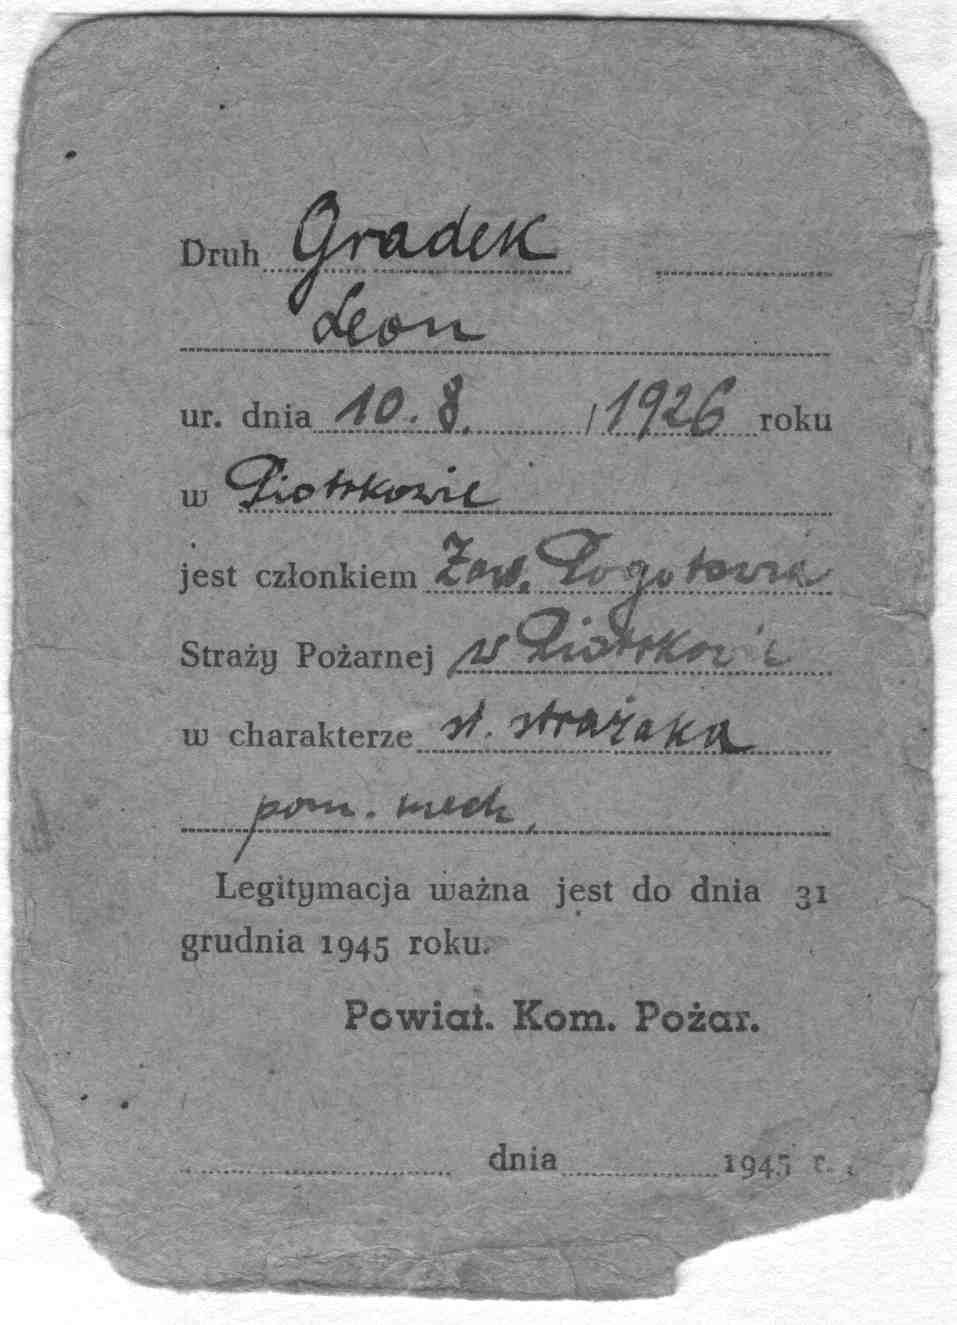 Druh Gradek
Leon
ur. dnia 10. 8. /1926 roku
w Piotrkowie
jest członkiem Zaw. Pogotowia
Straży Pożarnej w Piotrkowie
w charakterze st. strażaka
pom. mech.
Legitymacja ważna jest do dnia 31
grudnia 1945 roku.
Powiat. Kom. Pożar.
dnia 1945 r.